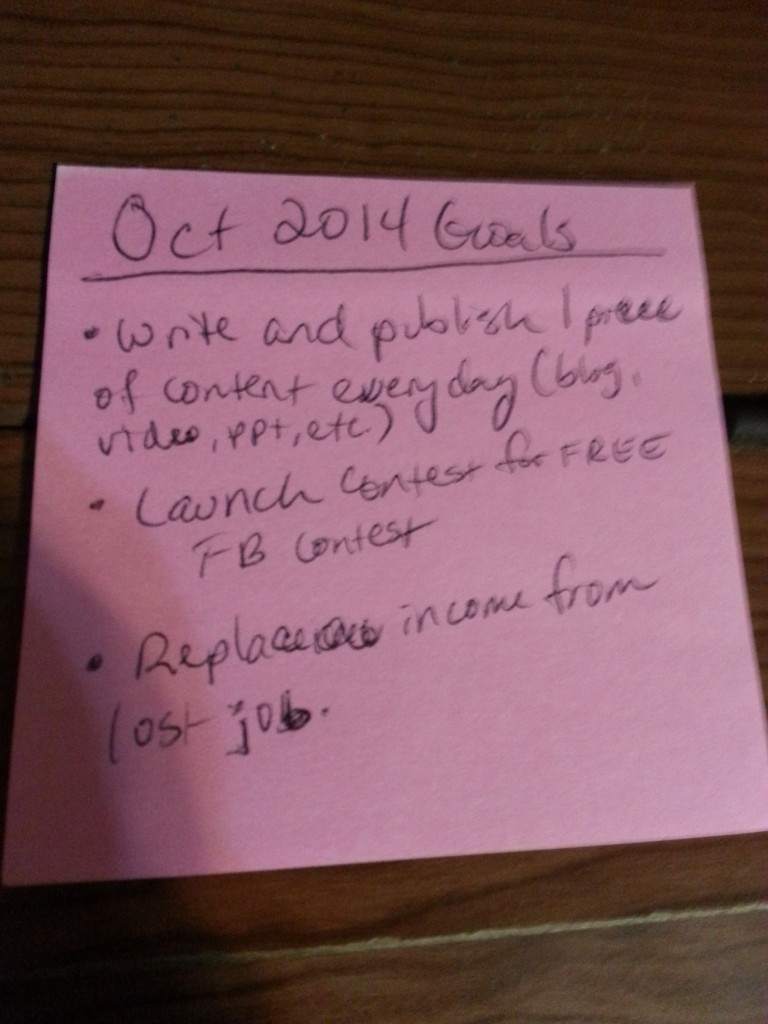 Oct 2014 Goals
• Write and publish 1 piece
of content everyday (blog,
video, ppt, etc.)
• Launch Contest for FREE
FB Contest
• Replace income from
lost job.